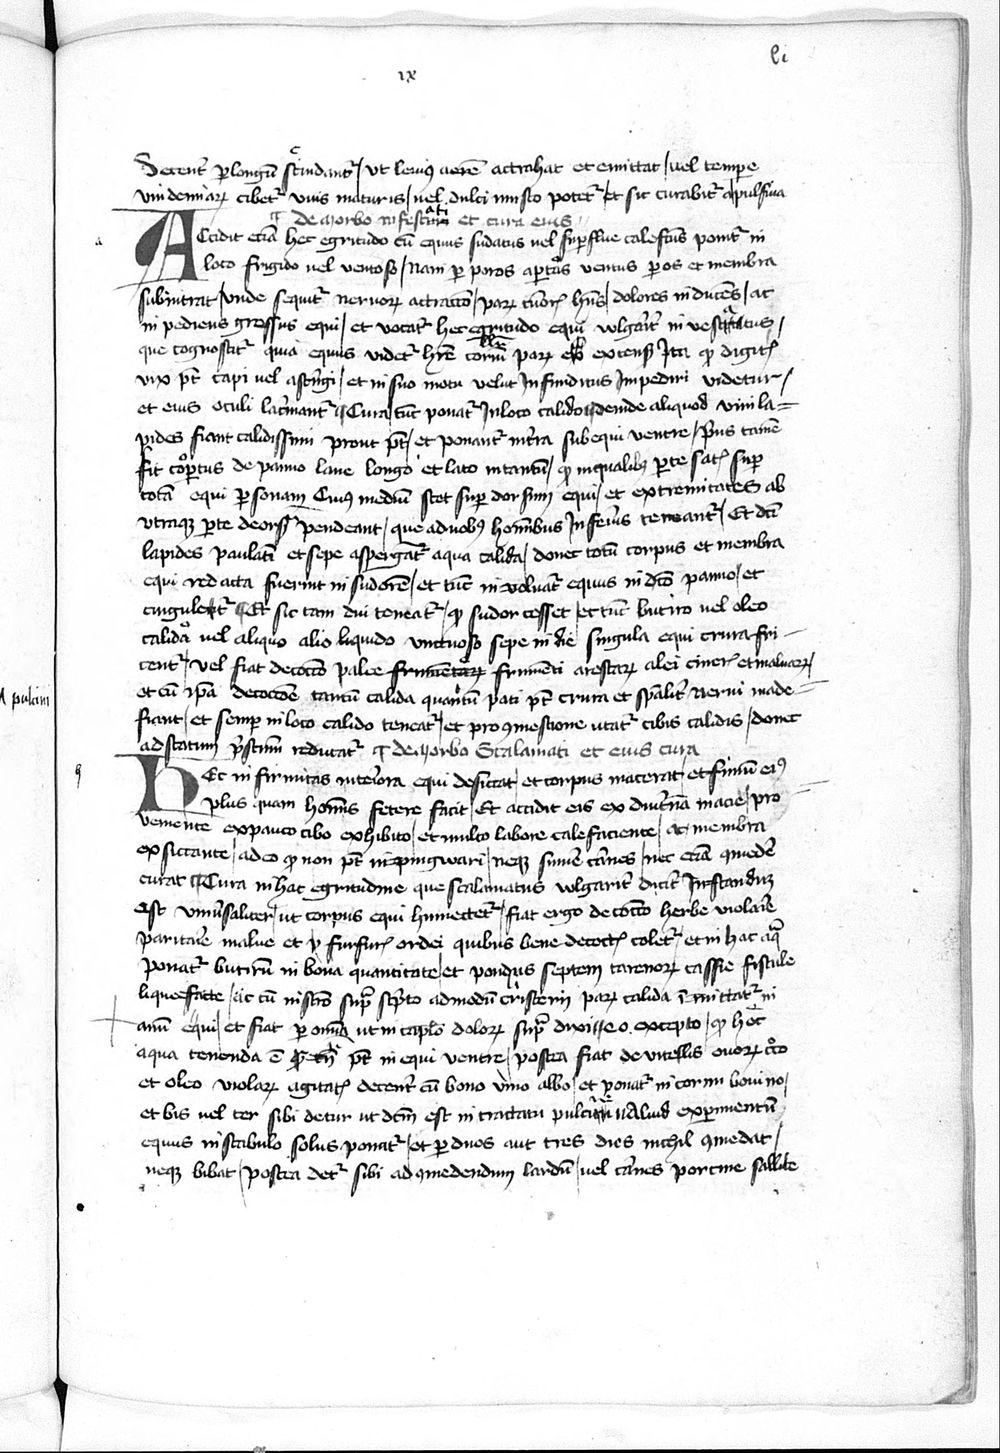 li
ix
decent᷑ ꝑ longũ scindant᷑ / ut leviꝰ aerē attrahat et emittat / uel tempe
vindemiaꝝ cibet᷑ uvis maturis / uel dulci musto potet᷑ et sic curabit᷑ a pulsiva
¶ de morbo infestati et cura eius
Accidit etiã hec egritudo cũ equus sudatus uel suꝑflue calefactus ponit᷑ in
loco frigido uel ventoso / Nam ꝑ poros aꝑtos ventus ꝑ os et membra
subintrat / vnde sequit᷑ nervoꝝ attractio / paꝝ dolores inducens / ac
inpediens gressus equi / et vocat᷑ hec egritudo equi vulgarit᷑ investatus /
que cognoscit᷑ quia equus videt᷑ hr̃e coriũ paꝝ extensũ Ita ꝙ digitis
vix pt̃ capi uel astringi / et in suo motu velut Infunditus Impediri videtur /
et eius oculi lacrimant᷑ ¶ Cura tũc ponat᷑ In loco calido deinde aliquod vivi la=
pides fiant calidissimi prout pt̃ / et ponant᷑ intra sub equi ventre / prius tamē
sit coꝑtus de panno lane longo et lato intantũ / ꝙ in qualibꝫ ꝑte satis suꝑ
totã equi ꝑsonam Cuiꝰ mediũ stet suꝑ dorsum equi / et extremitates ab
utraqꝫ ꝑte deorsũ pendeant / que a duobꝰ hominibus In ferius teneant᷑ / Et dc̃i
lapides paulatĩ et sepe aspergant᷑ aqua calida / donec totũ corpus et membra
equi redacta fuerint in sudorē / et tũc involvat᷑ equus in dc̃o panno / et
cinguletur ¶ Et sic tam diu teneat᷑ / ꝙ sudor cesset et tũc butiro uel oleo
calido uel aliquo alio liquido unctuoso sepe in die singula equi crura fri-
cent᷑ / vel fiat decoctio palee frumentaꝝ frumenti arestaꝝ alei cineꝝ et malvaꝝ /
et cũ ip̃a decoctione tantũ calida quantũ pati pt̃ crura et spãlit᷑ nervi made=
fiant / et semꝑ in loco calido teneat᷑ / et pro ꝯmestione utat᷑ cibis calidis / donec
ad statum pristinũ reducat᷑ ¶ de morbo Scalamati et eius cura
Hec infirmitas interiora equi desiccat / et corpus macerat / et fimũ eiꝰ
plus quam hominis fetere facit / Et accidit eis ex diuturna macie / pro
veniente ex pauco cibo exhibito / et multo labore calefaciente / ac membra
exsiccante / adeo ꝙ non pt̃ inpingwari / neqꝫ sumē carnes / nec etiã ꝯmedē
curat ¶ Cura in hac egritudine que scalamatus vulgarit᷑ dicit᷑ Instandũ
est universaliter / ut corpus equi humectet᷑ / fiat ergo decoctio herbe violarie
paritarie malve et furfuris ordei quibus bene decoctis colet᷑ / et in hac aq̃
ponat᷑ butirũ in bona quantitate / et pondus septem tarenoꝝ cassie fistule
liquefacte / ac cũ suꝑ sc̃pto ad modũ cristerii paꝝ calida ĩmittat᷑ in
anũ equi / et fiat ꝑ omnia ut in cap̃lo doloꝝ supͣ dixi excepto / ꝙ hec
aqua tenenda ē pt̃ in equi ventre / postea fiat de vitellis ovoꝝ
et oleo violaꝝ agitatis decent᷑ cũ bono vino albo / et ponat᷑ in cornu bovino /
et bis uel ter sibi detur ut dc̃m est in tractatu pulcini Aliud experimentũ
equus in stabulo solus ponat᷑ / et ꝑ duos aut tres dies nichil ꝯmedat /
neqꝫ bibat / postea det᷑ sibi ad ꝯmedendum lardũ / uel carnes porcine sallite
pulcini